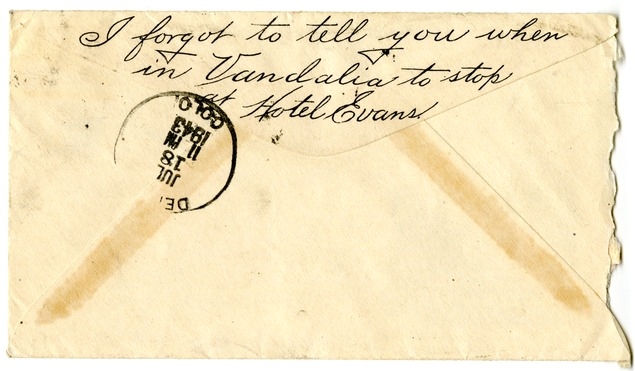 I forgot to tell you when
in Vandalia to stop
at Hotel Evans
COLO.
1943
11 PM
18
JUL
DE